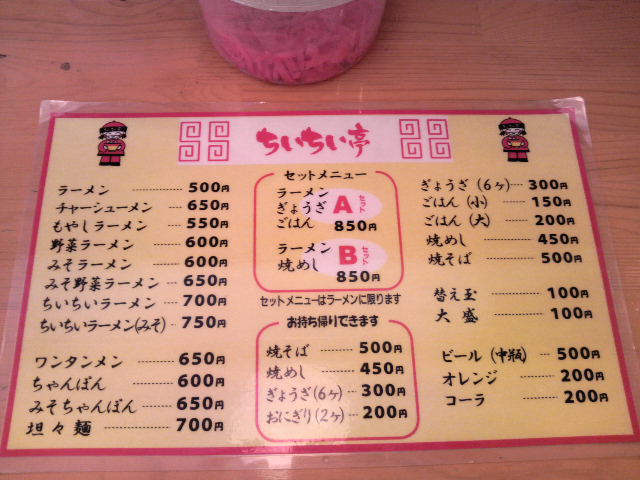 ちいちい亭
ラーメン 500円
チャーシューメン 650円
もやしラーメン 550円
野菜ラーメン 600円
みそラーメン 600円
みそ野菜ラーメン 650円
ちいちいラーメン 700円
ちいちいラーメン(みそ) 750円
ワンタンメン 650円
ちゃんぽん 600円
みそちゃんぽん 650円
坦々麺 700円
セットメニュー
ラーメン
ぎょうざ
ごはん
Aセット
850円
ラーメン
焼めし
Bセット
850円
セットメニューはラーメンに限ります
お持ち帰りできます
焼そば 500円
焼めし 450円
ぎょうざ(6ヶ) 300円
おにぎり(2ヶ) 200円
ぎょうざ(6ヶ) 300円
ごはん(小) 150円
ごはん(大) 200円
焼めし 450円
焼そば 500円
替え玉 100円
大盛 100円
ビール(中瓶) 500円
オレンジ 200円
コーラ 200円